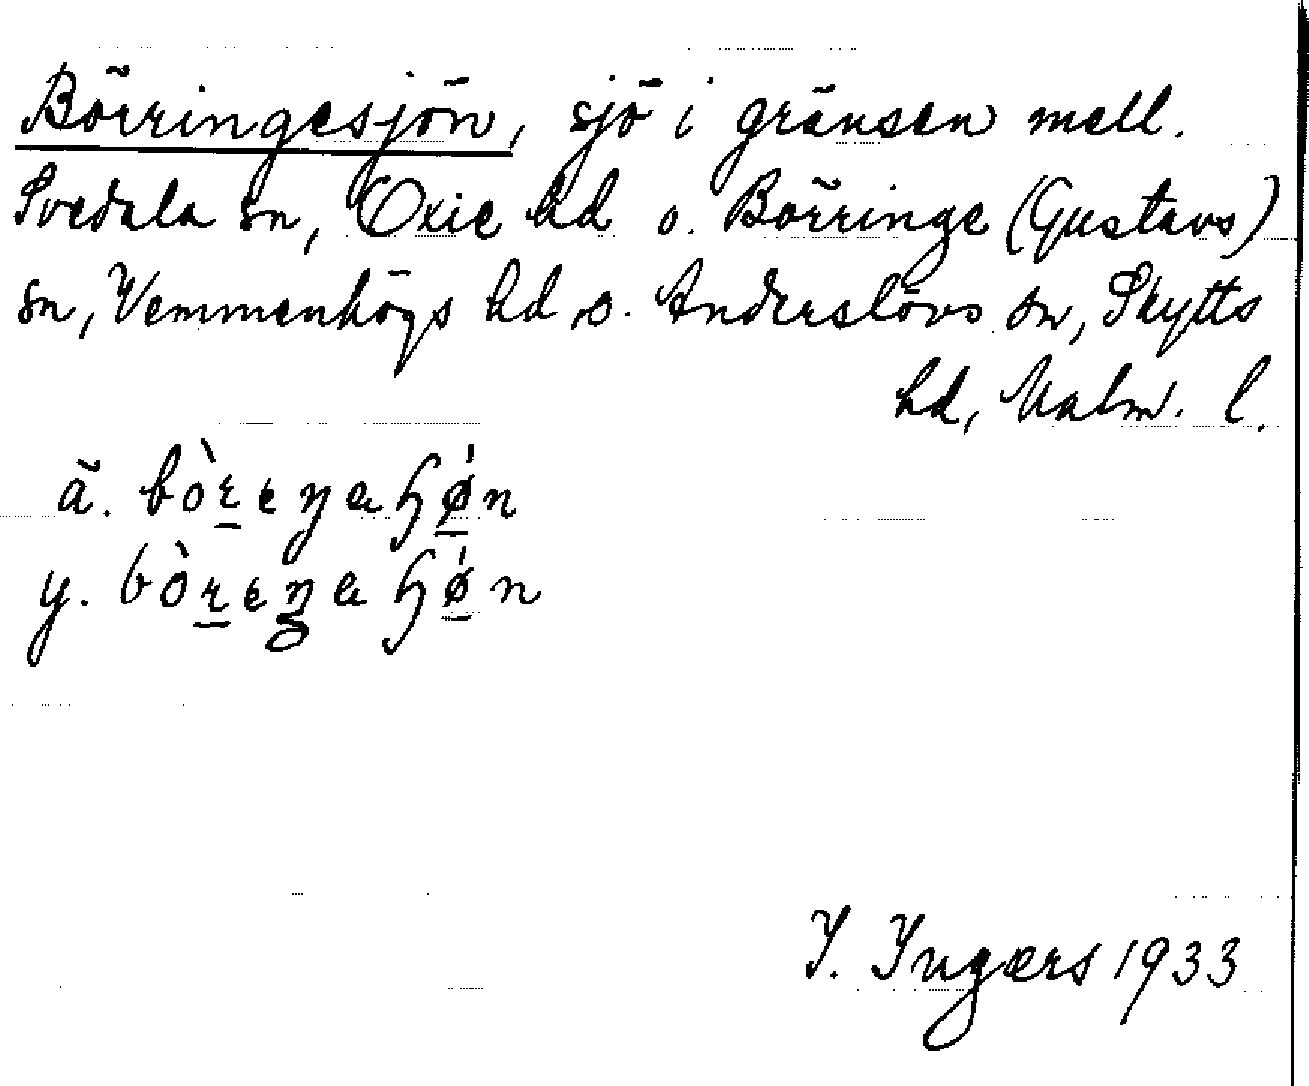 Börringesjön, sjö i gränsen mell.
Svedala sn, Oxie hd o. Börringe (Gustavs)
sn, Vemmenhögs hd, o. Anderslövs sn, Skytts
hd, Malm. l.
ä.
y.
I. Ingers 1933